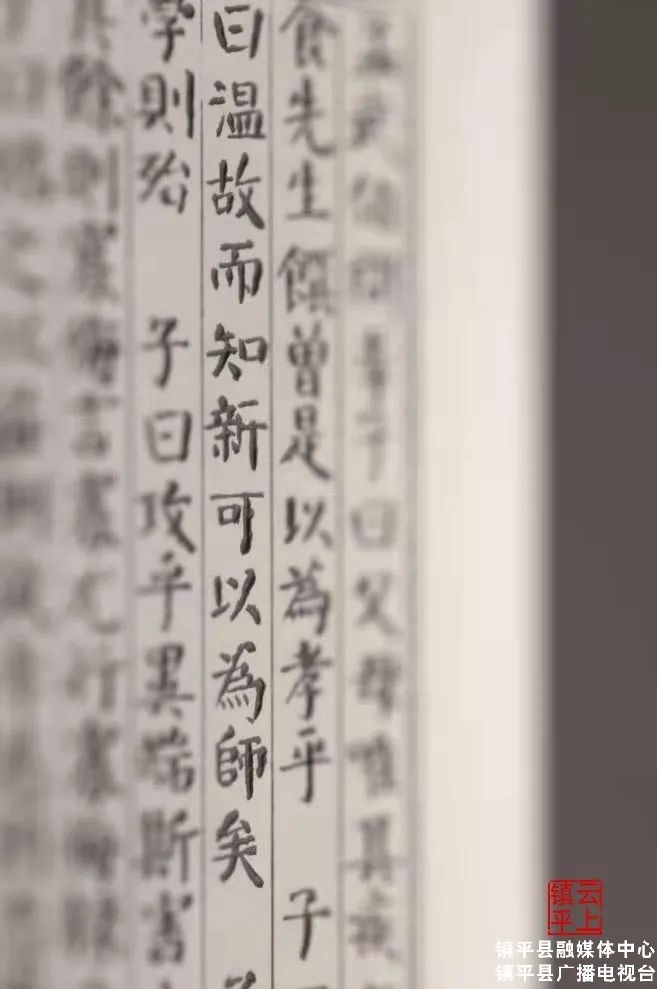 孟武伯問孝子曰父母唯其疾
食先生饌曾是以為孝乎 子
曰温故而知新可以為師矣
學則殆 子曰攻乎異端斯害
其餘則寡悔言寡尤行寡悔祿
云上
镇平
镇平县融媒体中心
镇平县广播电视台